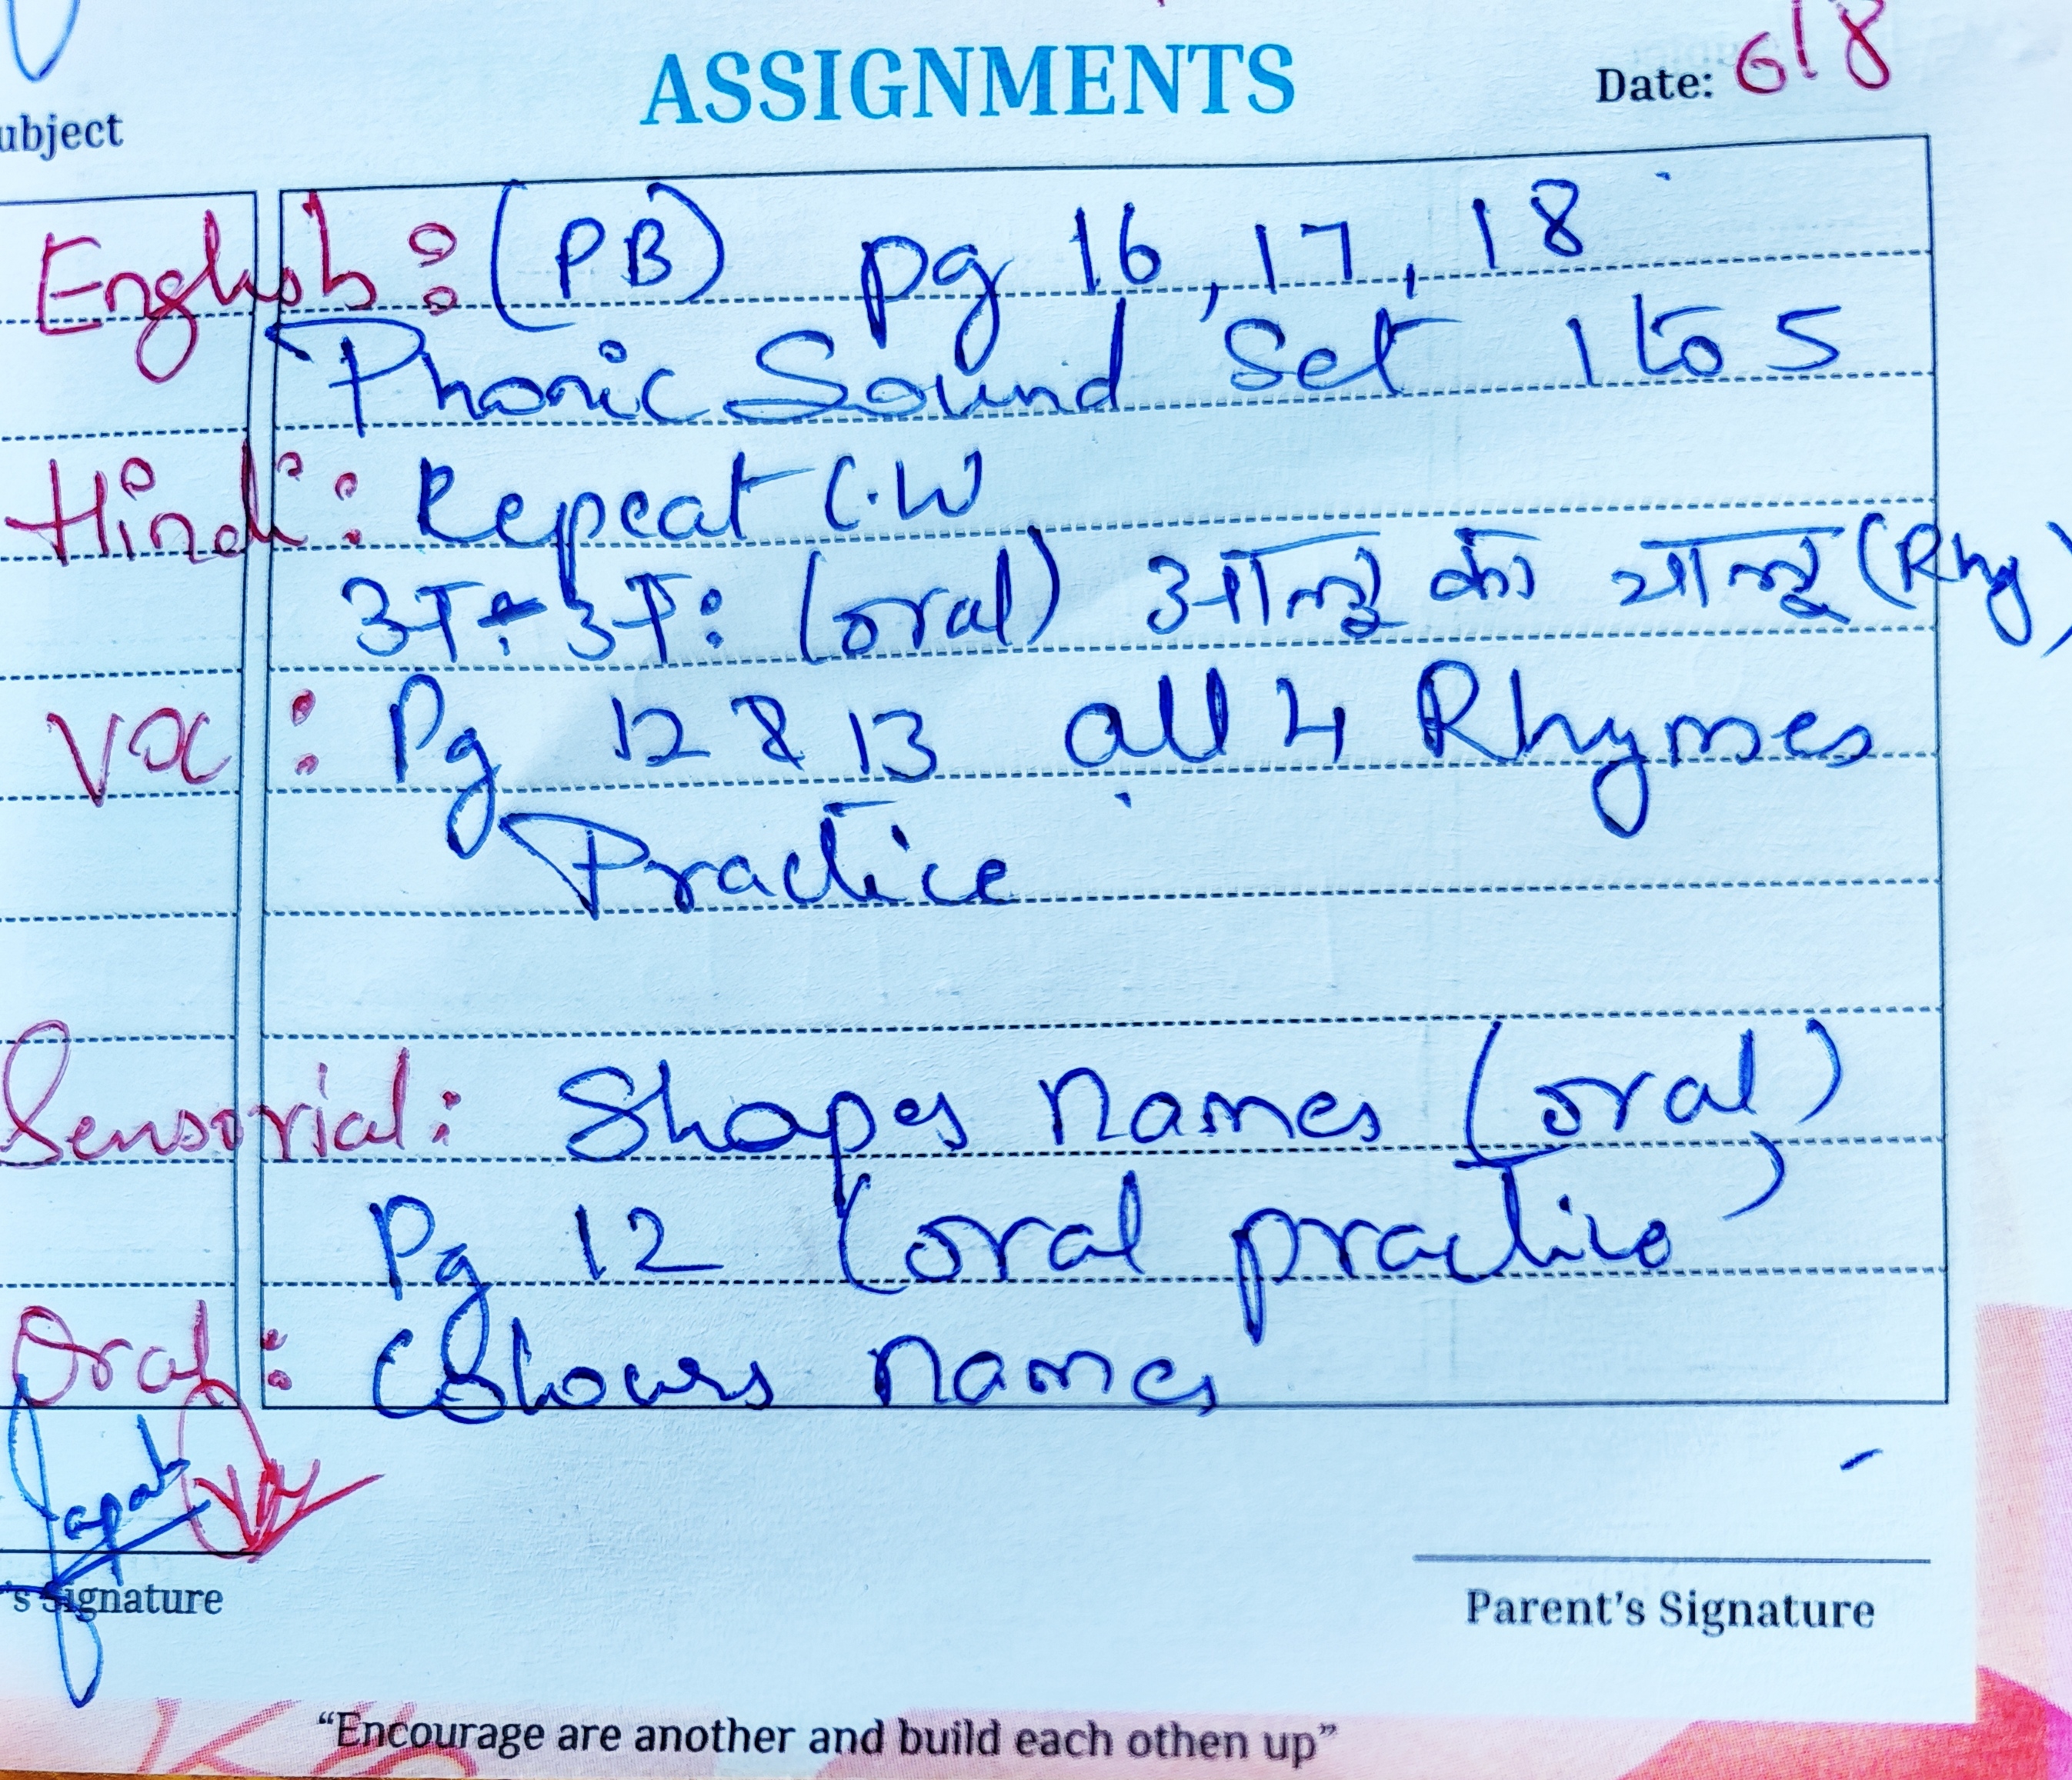 ASSIGNMENTS
Date: 6/8
ubject
English: (PB) pg 16, 17, 18
Phonic Sound Set 1 to 5
Hindi: Repeat C.W
अ - अः (oral) आलू का चालू (Rhy)
VOC: Pg 12 & 13 all 4 Rhymes
Practice
Sensorial: Shapes names (oral)
Pg 12 (oral practice)
Oral: Colours names
's Signature
Parent's Signature
“Encourage are another and build each othen up”